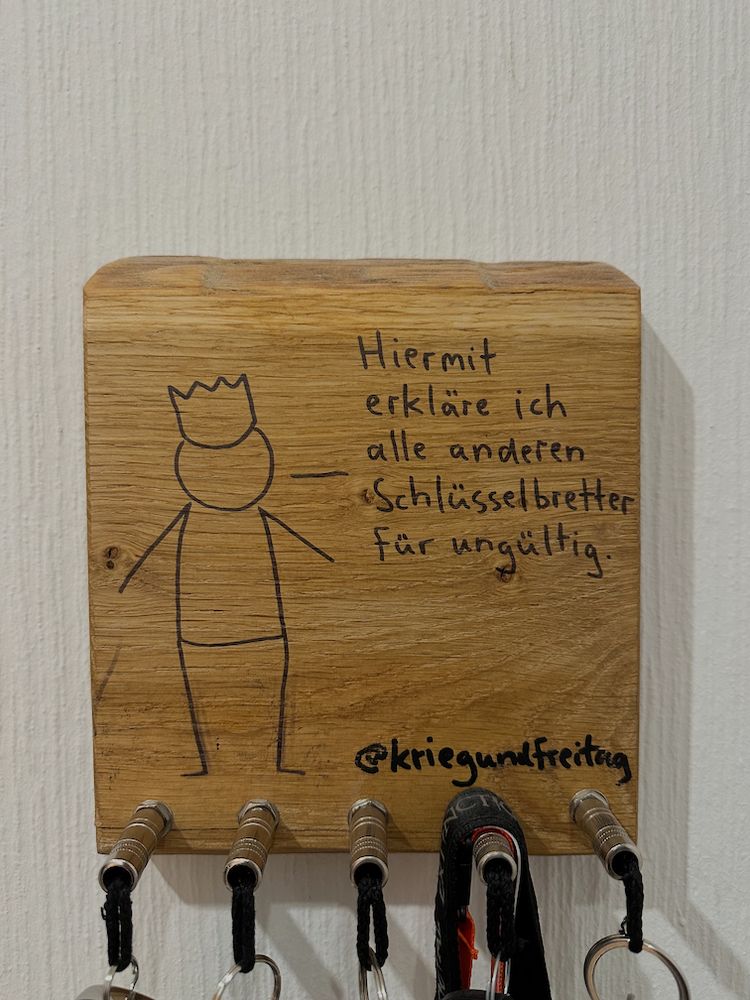 Hiermit
erkläre ich
alle anderen
Schlüsselbretter
für ungültig.
@kriegundfreitag